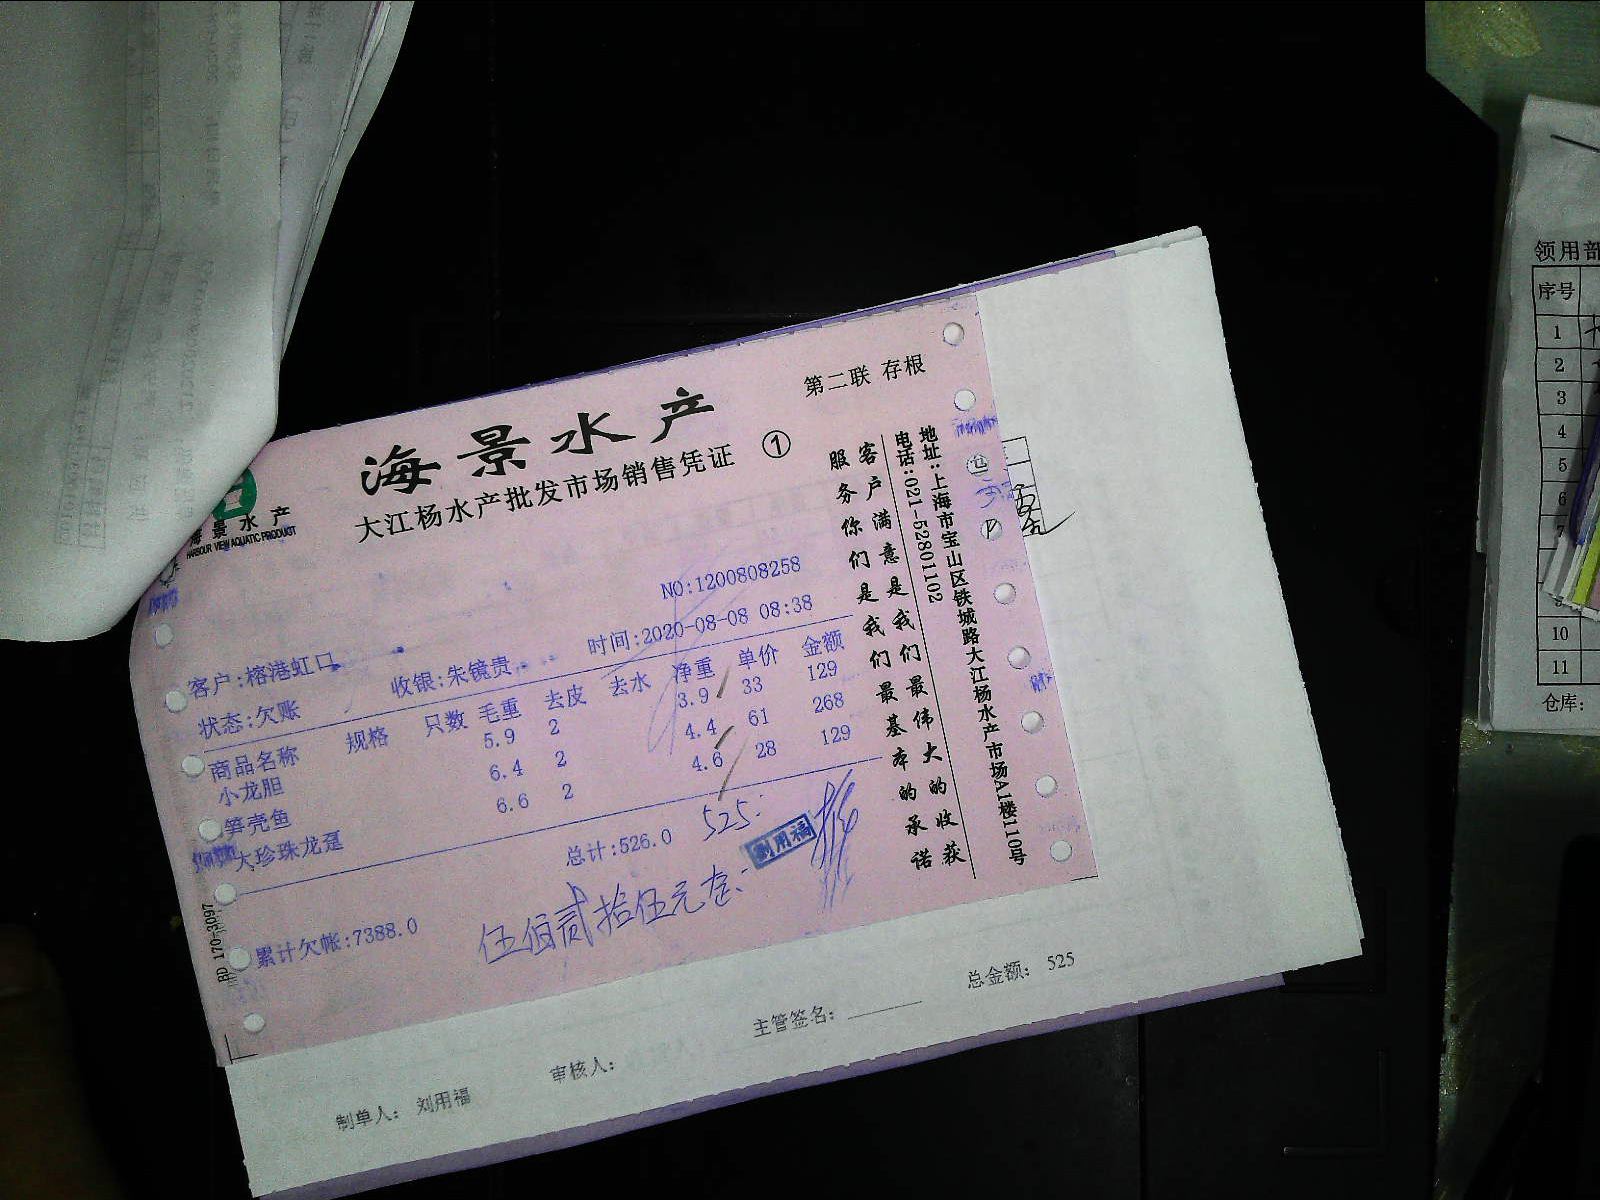 第二联 存根
海景水产
大江杨水产批发市场销售凭证 ①
海景水产
HARBOUR VIEW AQUATIC PRODUCT
NO:1200808258
时间:2020-08-08 08:38
客户:榕港虹口 收银:朱镜贵
状态:欠账
商品名称 规格 只数 毛重 去皮 去水 净重 单价 金额
小龙胆 5.9 2 3.9 33 129
笋壳鱼 6.4 2 4.4 61 268
大珍珠龙趸 6.6 2 4.6 28 129
总计:526.0 525
刘用福
累计欠帐:7388.0
伍佰贰拾伍元
BD 170-3097
客户满意是我们最伟大的收获
服务你们是我们最基本的承诺
地址:上海市宝山区铁城路大江杨水产市场A1楼110号
电话:021-52801102
总金额: 525
主管签名:
审核人:
制单人: 刘用福
领用部
序号
1
2
3
4
5
6
7
9
10
11
仓库: